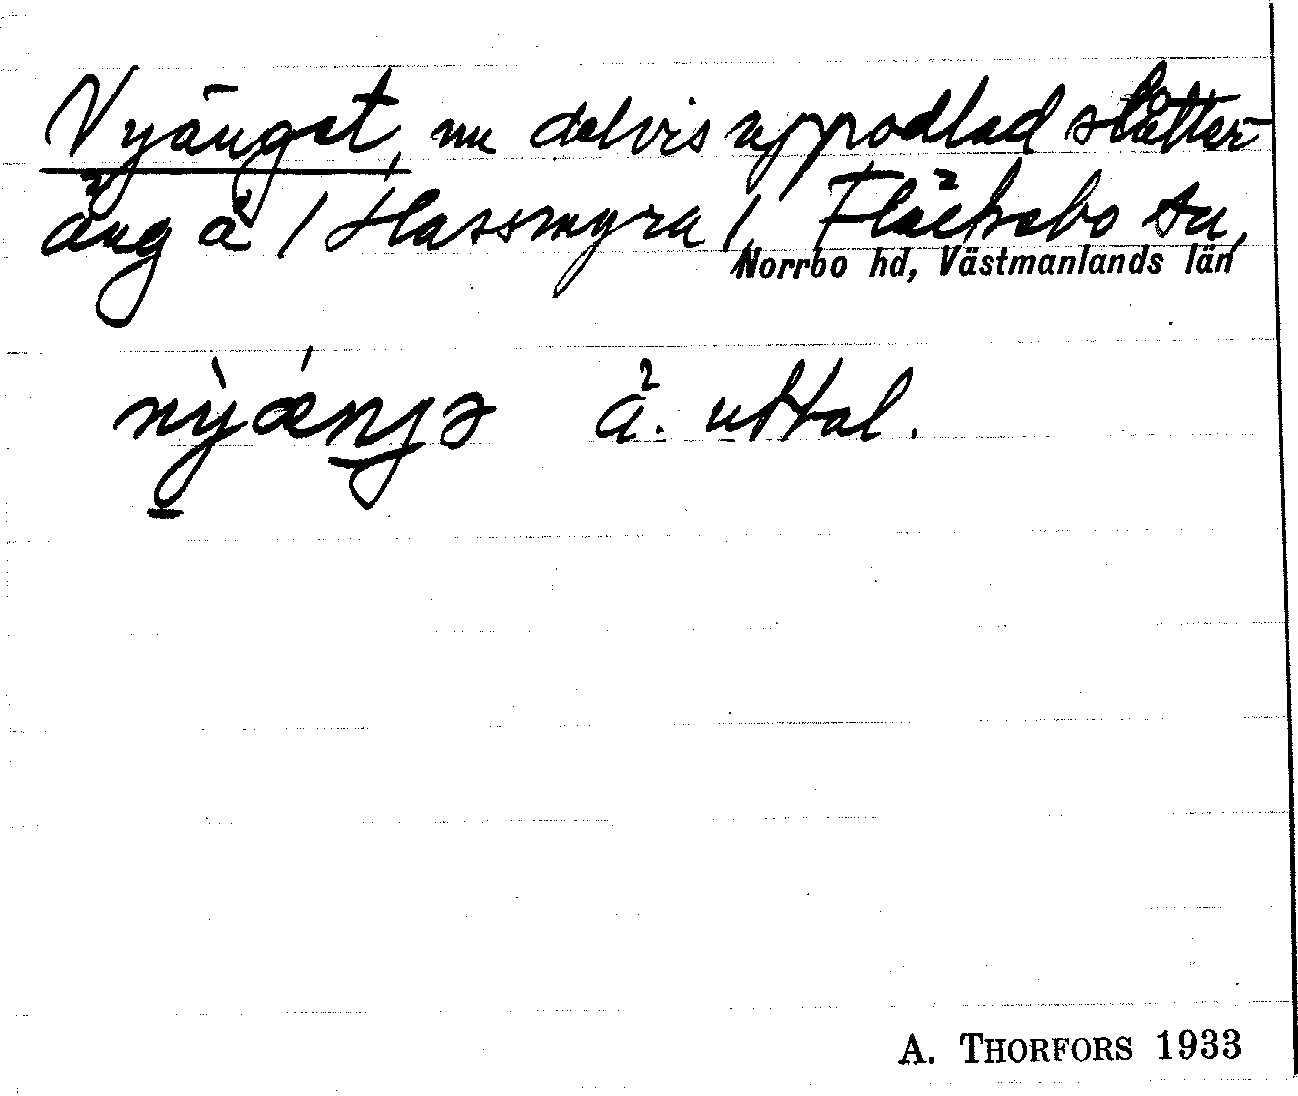 Nyänget, nu delvis uppodlad slåtter-
äng å /Hassmyra/, Fläckebo sn,
Norrbo hd, Västmanlands län
nỳǽŋʝə ä. uttal.
A. THORFORS 1933